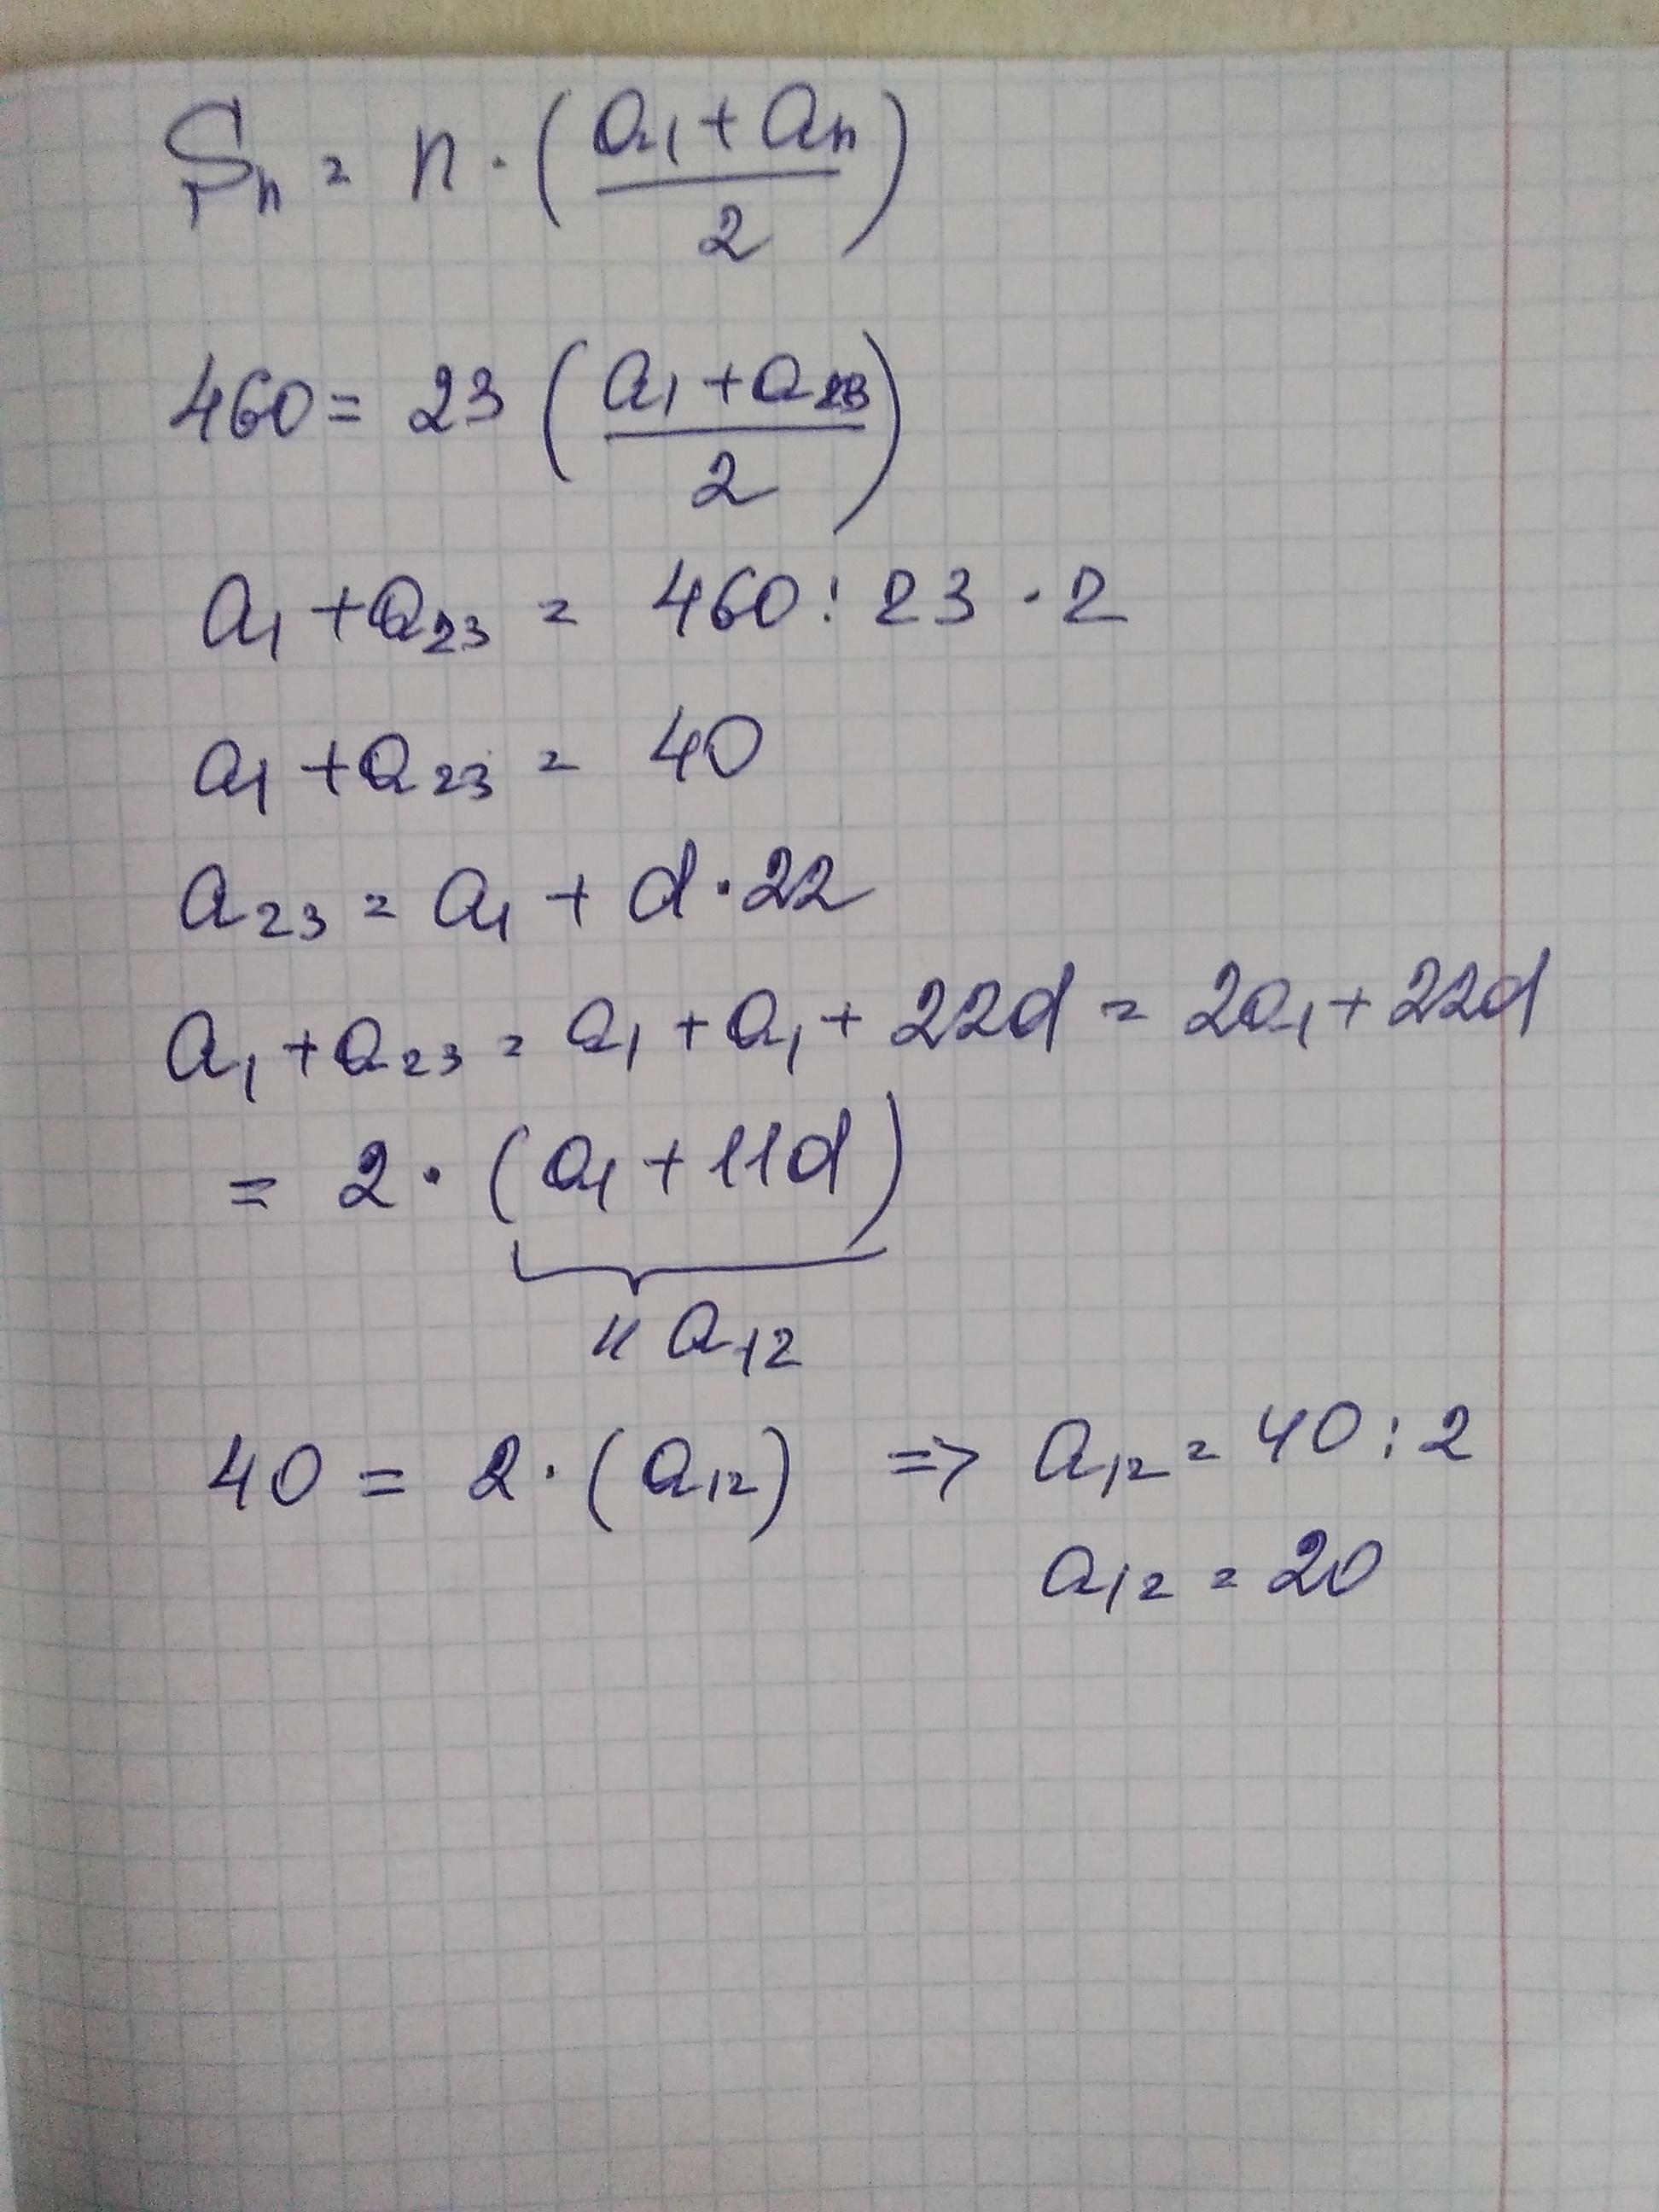 Sn = n · (a₁ + aₙ / 2)
460 = 23 (a₁ + a₂₃ / 2)
a₁ + a₂₃ = 460 : 23 · 2
a₁ + a₂₃ = 40
a₂₃ = a₁ + d · 22
a₁ + a₂₃ = a₁ + a₁ + 22d = 2a₁ + 22d
= 2 · (a₁ + 11d)
" a₁₂
40 = 2 · (a₁₂) => a₁₂ = 40 : 2
a₁₂ = 20